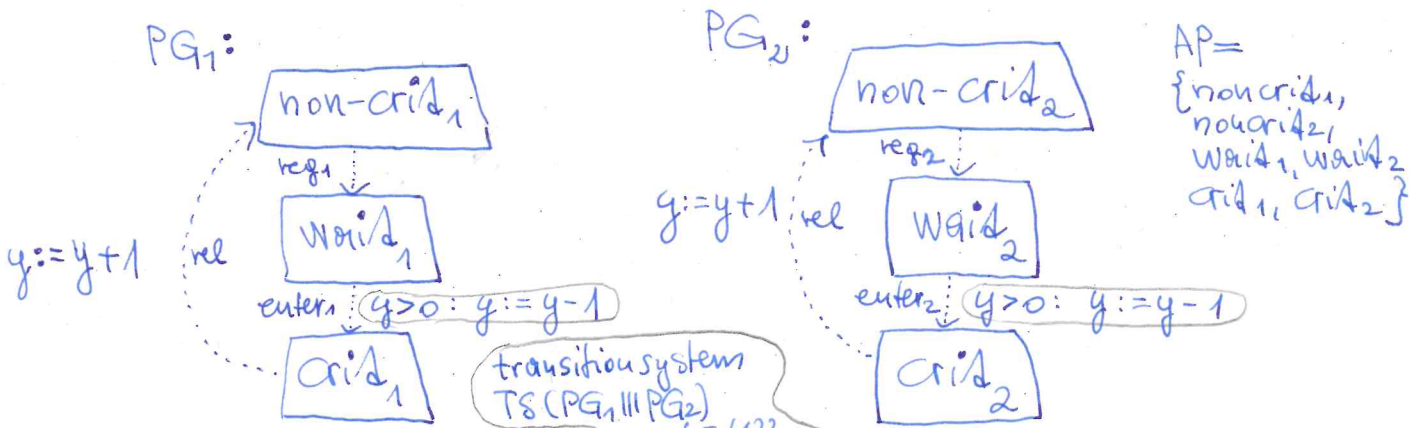 PG₁:
non-crit₁
req₁
wait₁
y:=y+1
rel
enter₁
y>0: y:=y-1
crit₁
transition system
TS(PG₁|||PG₂)
PG₂:
non-crit₂
req₂
wait₂
y:=y+1
rel
enter₂
y>0: y:=y-1
crit₂
AP=
{noncrit₁,
noncrit₂,
wait₁, wait₂
crit₁, crit₂}